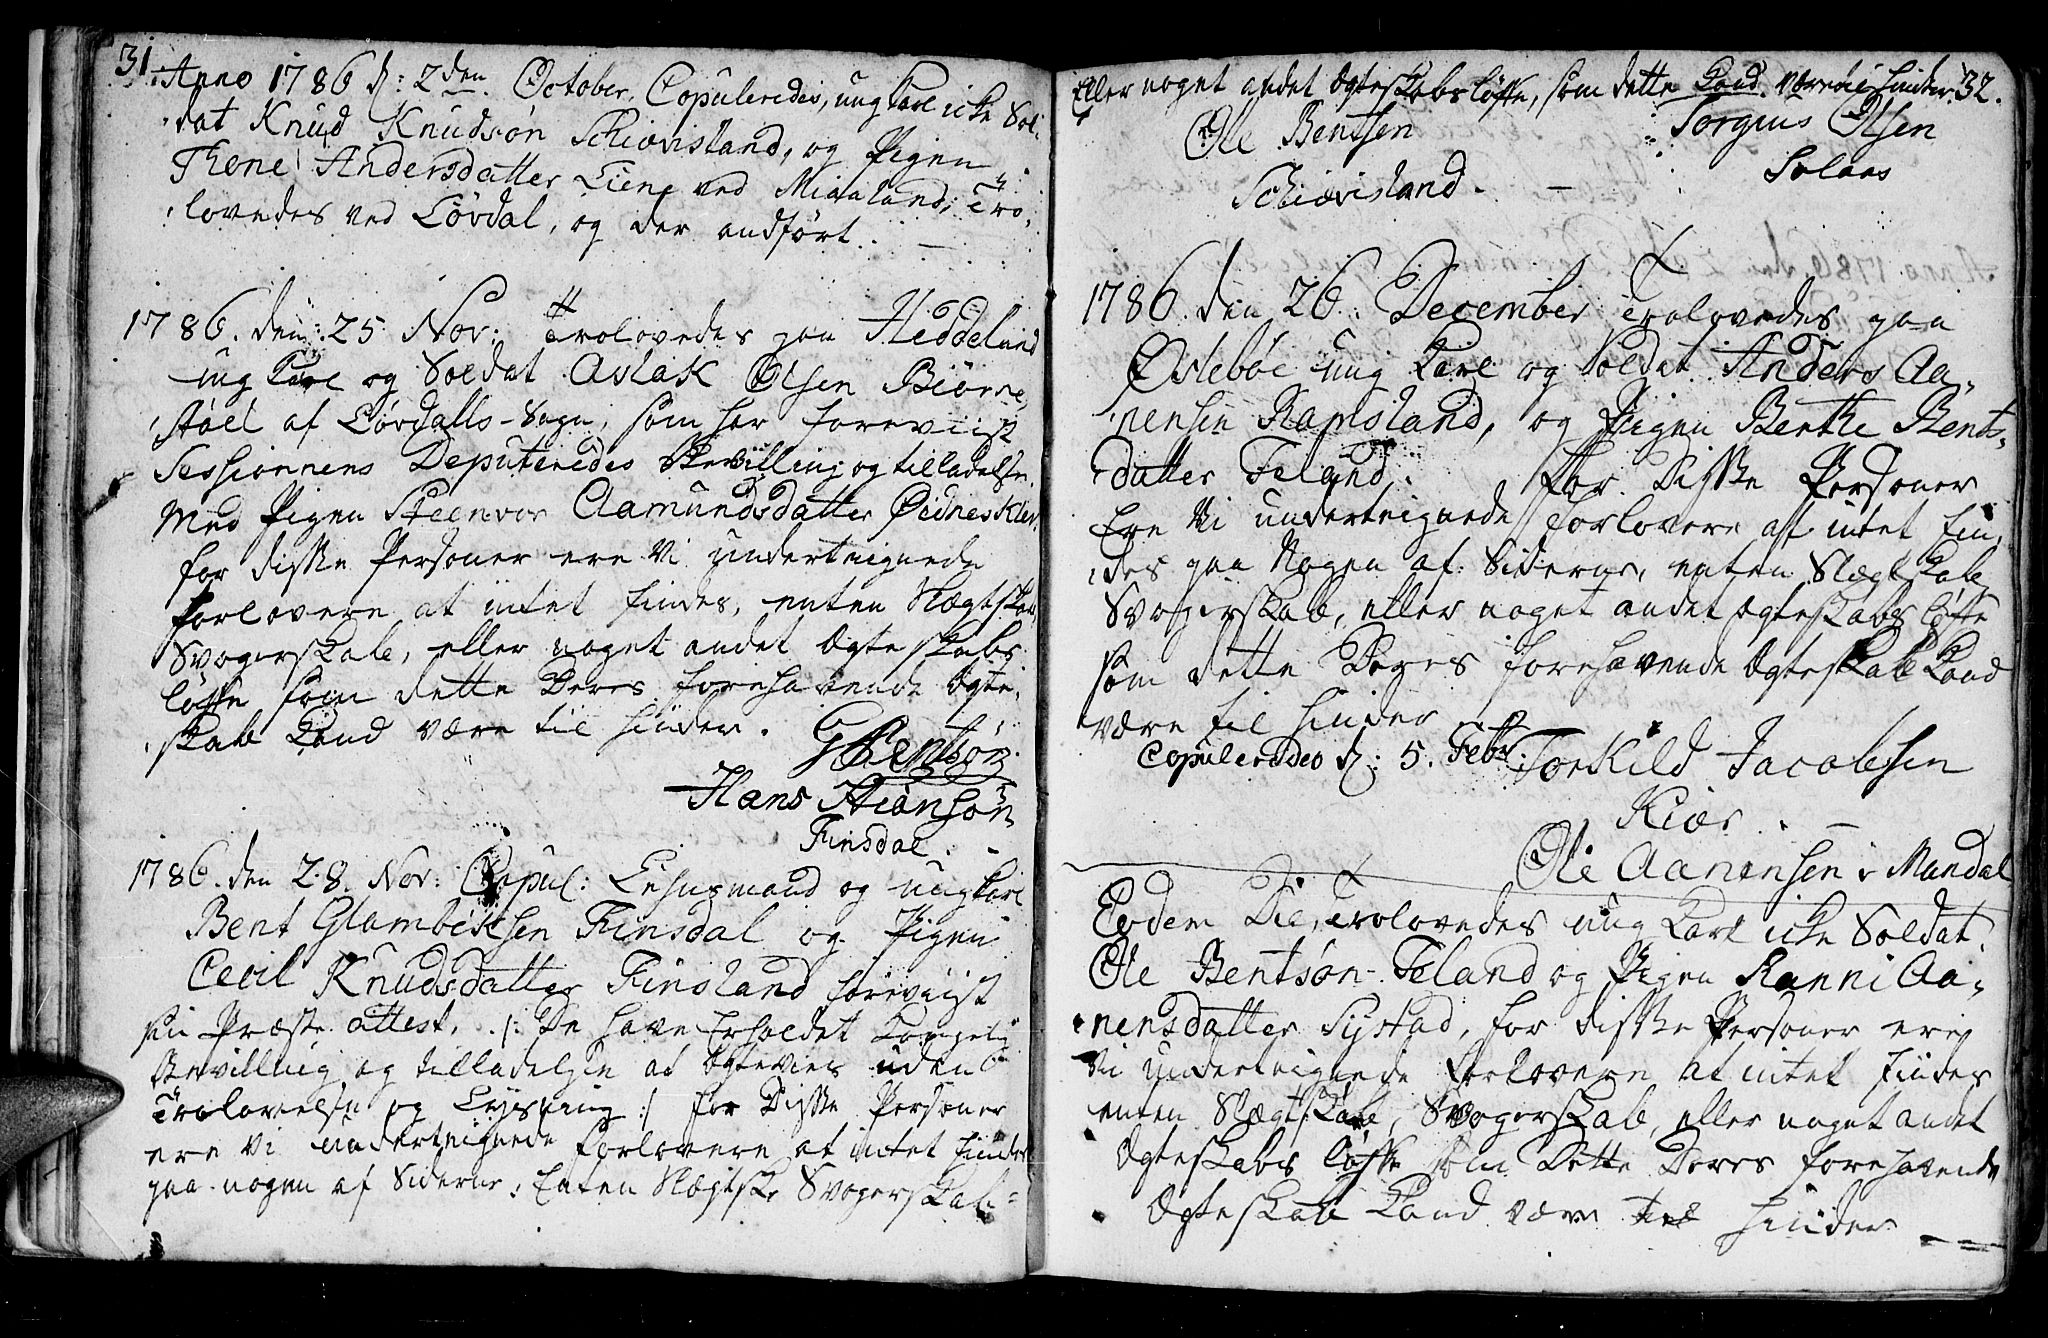 31.
Anno 1786 d: 2den October, Copuleredes, ung karl icke Sol-
dat Knud Knudsøn Schiævisland, og Pigen
Thone Andersdatter Liene ved Miaaland; Tro-
lovedes ved Løvdal, og der andført.
1786. den: 25 Nov: Trolovedes paa Heddeland
ung Karl og Soldat Aslak Olsen Biørne-
støel af Løvdalls-Sogn, som har foreviist
Sessionnens Deputeredes Bevilling og tilladelse,
Med Pigen Steenvor Aamundsdatter Øidneskler
for disse Personer ere Vi undertegnede
forlovere at intet findes, enten Slægtskab,
Svogerskab, eller noget andet Ægteskabs
løfte som dette Deres forehavende Ægte-
skab Kand være til hinder.
G Bentsøn
Hans Stiansøn
Finsdal.
1786. den 28. Nov: Copul: Lehnsmand og ung karl
Bent Glambeksen Finsdal og Pigen
Cecil Knudsdatter Finsland foreviist
sin Præste attest. /: De have Erholdet Kongelig
Bevilling og tilladelse at Ægtevies uden
Trolovelse og Lysning :/ for Disse Personer
ere Vi undertegnede forlovere at intet findes
paa nogen af Siderne, Enten Slægtsk: Svogerskab
32.
Eller noget andet Ægteskabs løfte, som dette Kand være til hinder.
Ole Bentsen
Schiævisland.
Torgius Olsen
Solaas
1786. den 26. December Trolovedes paa
Øslebøe ung Karl og Soldat Anders Aa-
nensen Ramsland, og Pigen Berthe Bents-
datter Feland. For Disse Personer
Ere Vi undertegnede forlovere at intet fin-
des paa Nogen af Siderne, enten Slægtskab
Svogerskab, eller noget andet Ægteskabs løfte
som dette Deres forehavende Ægteskab Kand
være til hinder
Copuleredes d: 5. Febr:
Torkild Jacobsen
Kiær.
Ole Aanensen i Mandal
Eodem Die, Trolovedes ung Karl icke Soldat
Ole Bentsøn Feland og Pigen Ranni Aa-
nensdatter Systad, for disse Personer ere
Vi undertegnede forlovere at intet findes
enten Slægtskab, Svogerskab, eller noget andet
Ægteskabs løfte som Dette Deres forehavende
Ægteskab Kand være til hinder